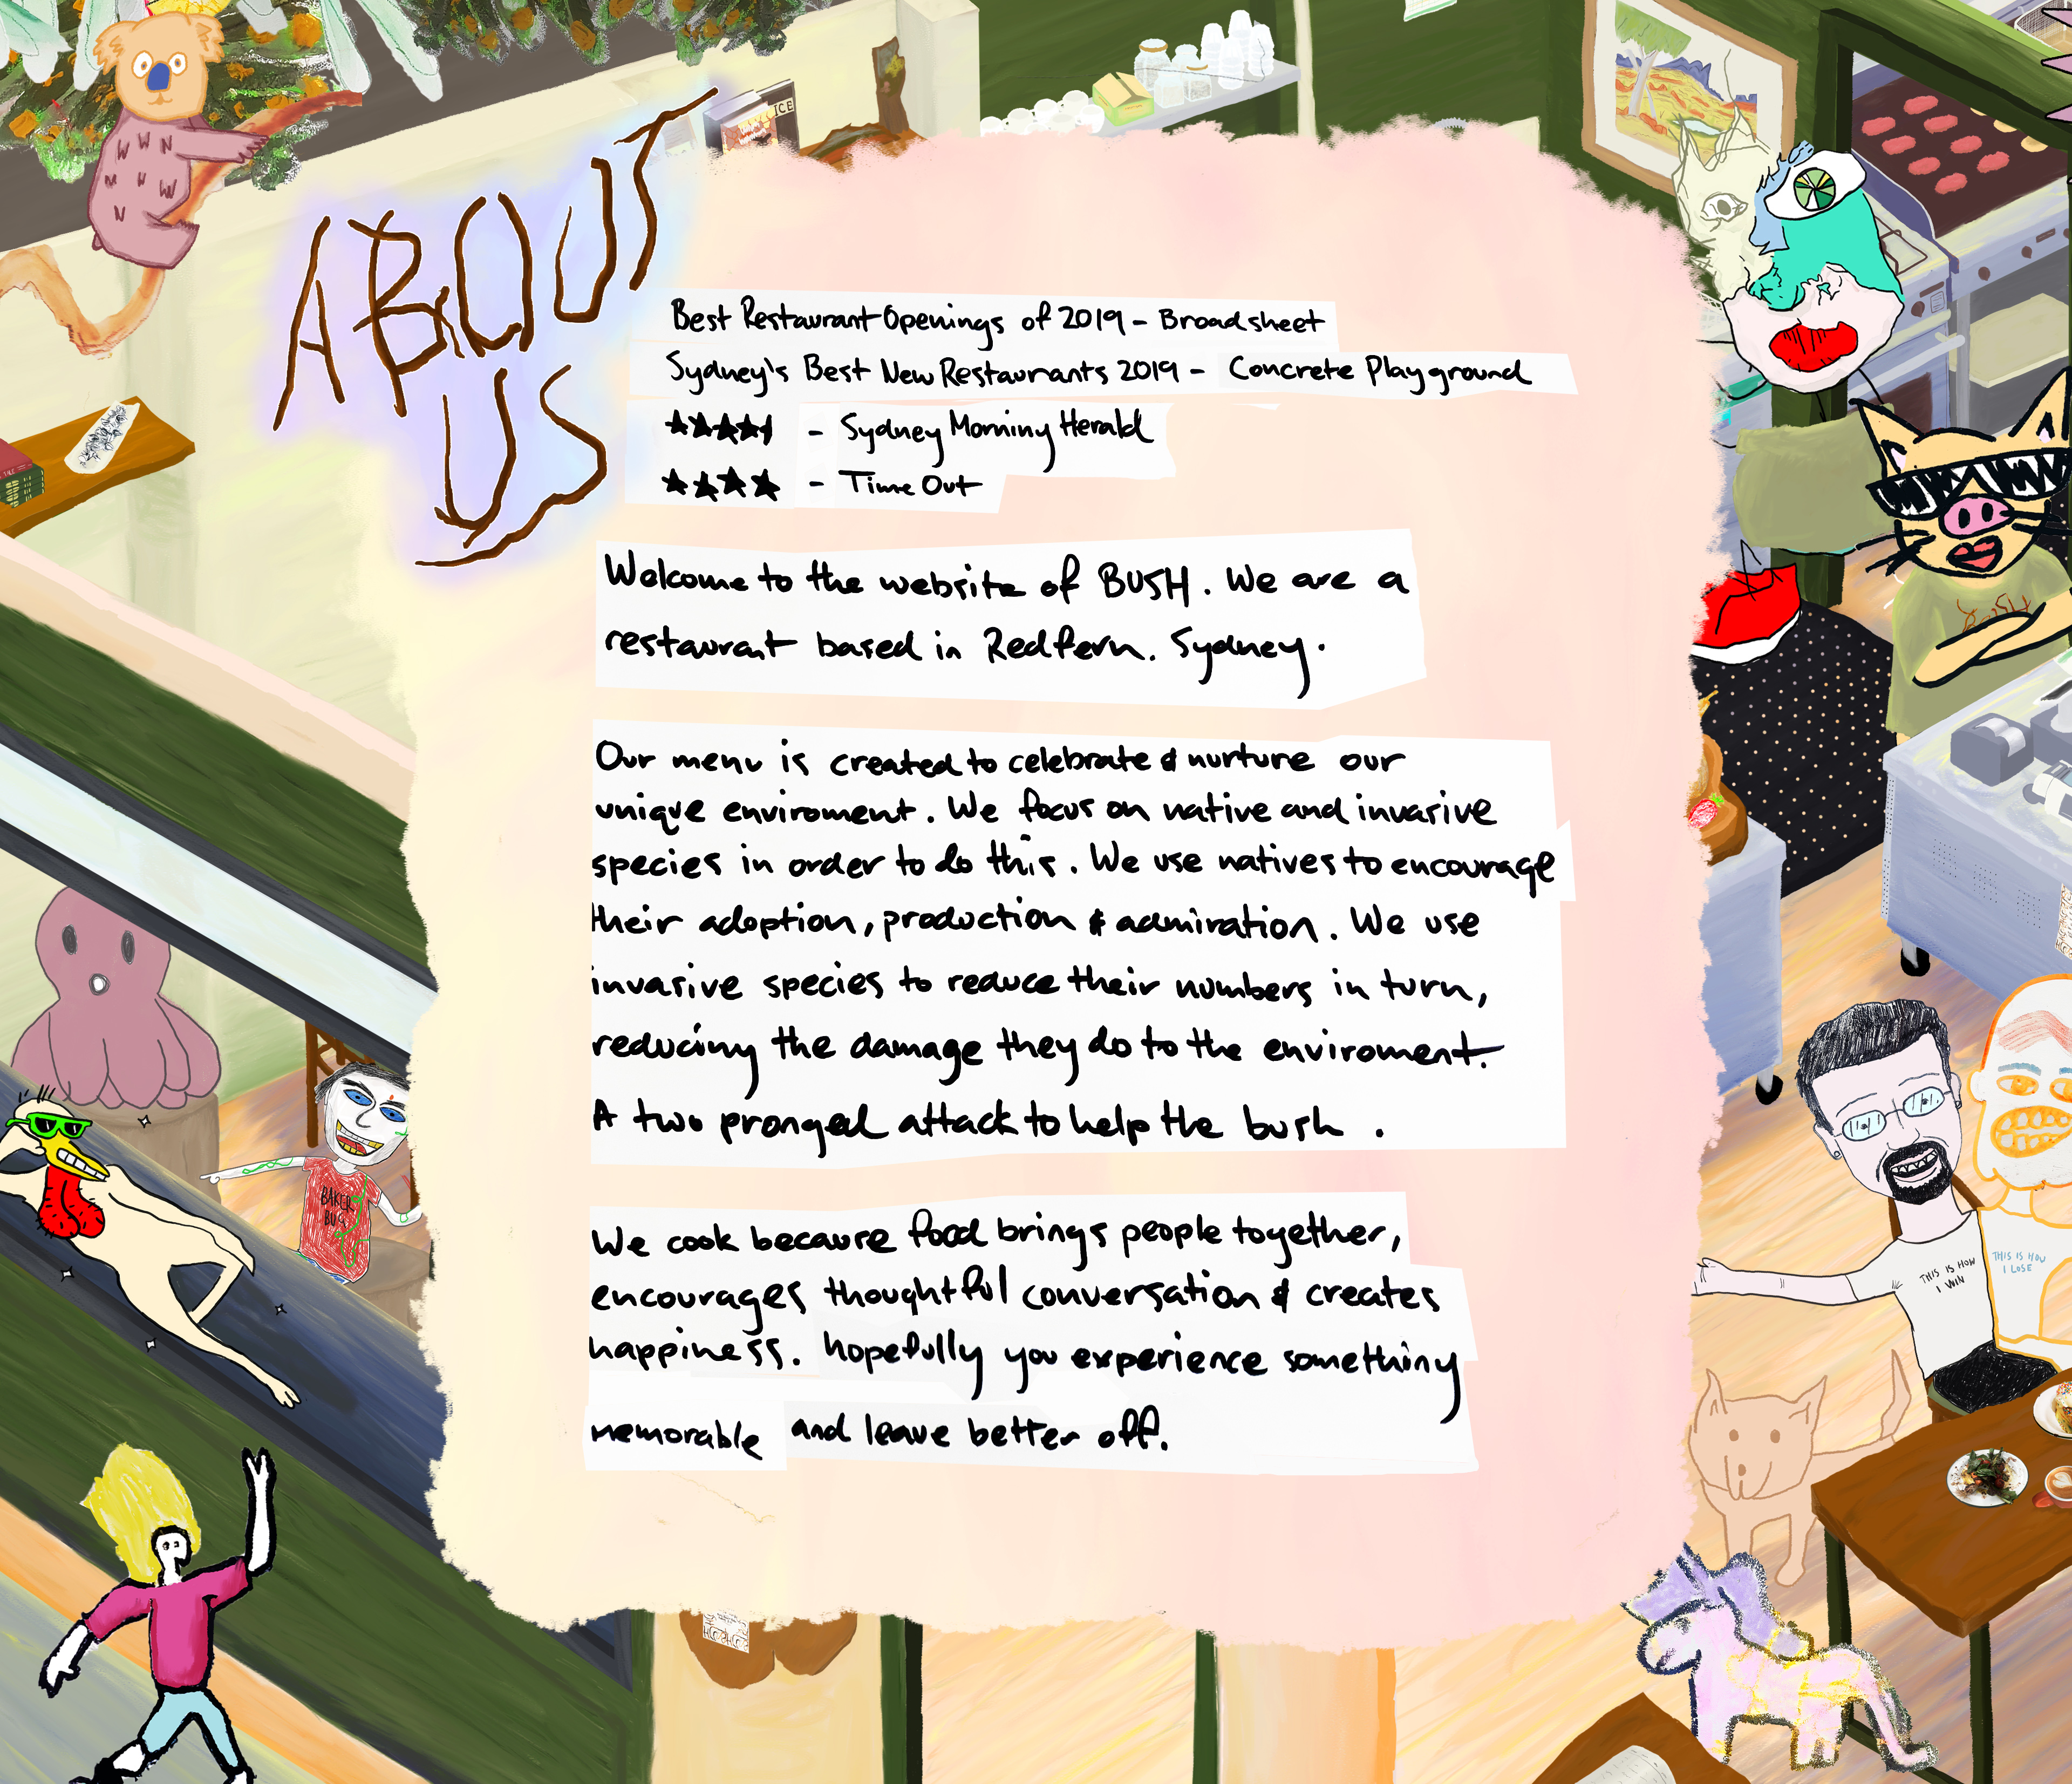 ICE
ABOUT
US
Best Restaurant Openings of 2019 - Broadsheet
Sydney's Best New Restaurants 2019 - Concrete Playground
★★★★⯨ - Sydney Morning Herald
★★★★ - Time Out
Welcome to the website of BUSH. We are a
restaurant based in Redfern. Sydney.
Our menu is created to celebrate & nurture our
unique enviroment. We focus on native and invasive
species in order to do this. We use natives to encourage
their adoption, production & admiration. We use
invasive species to reduce their numbers in turn,
reducing the damage they do to the enviroment.
A two pronged attack to help the bush .
We cook because food brings people together,
encourages thoughtful conversation & creates
happiness. hopefully you experience something
memorable and leave better off.
BUSH
BAKER
BUG
THIS IS HOW
I WIN
THIS IS HOW
I LOSE